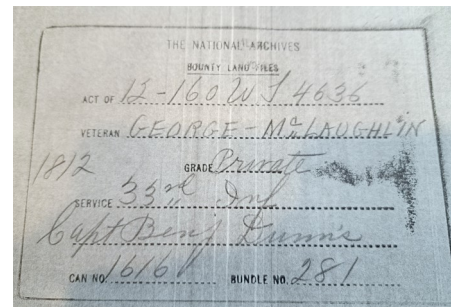 THE NATIONAL ARCHIVES
BOUNTY LAND FILES
ACT OF 12-160 W J 4636
VETERAN GEORGE - McLAUGHLIN
1812 GRADE Private
SERVICE 33rd Inf
Capt Benj Dunn's
CAN NO. 1616V BUNDLE NO. 281